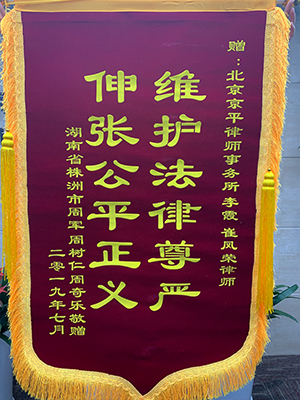 赠：北京京平律师事务所李霞 崔凤荣律师
维护法律尊严
伸张公平正义
湖南省株洲市周军周树仁周奇乐敬赠
二零一九年七月